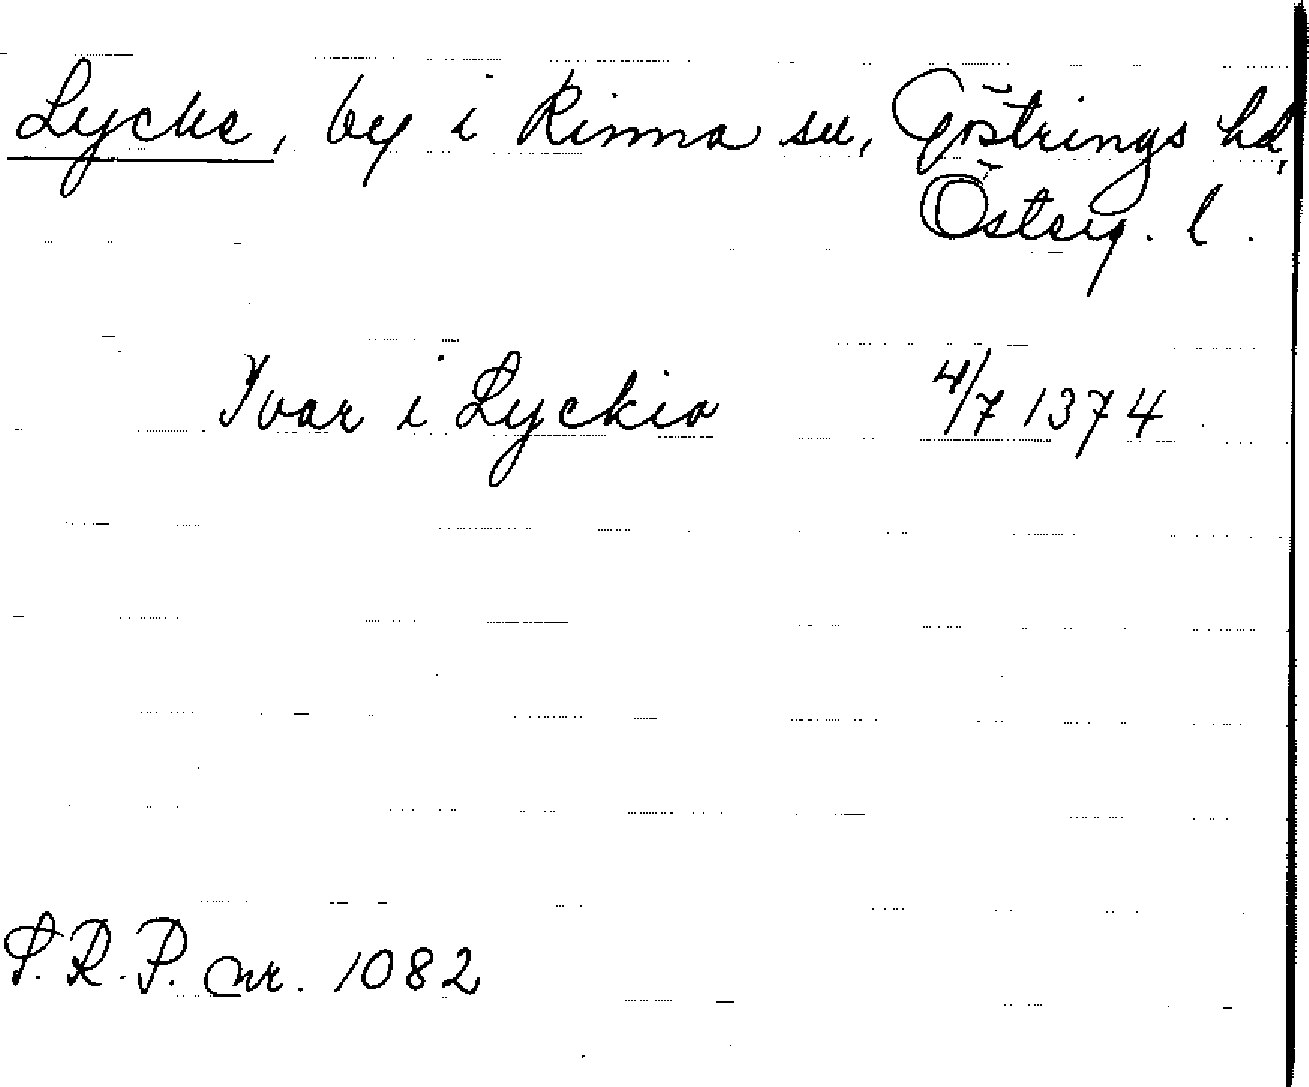 Lycke, by i Rinna sn, Göstrings hd,
Österg. l.
Ivar i Lyckio 4/7 1374
S.R.P. nr. 1082